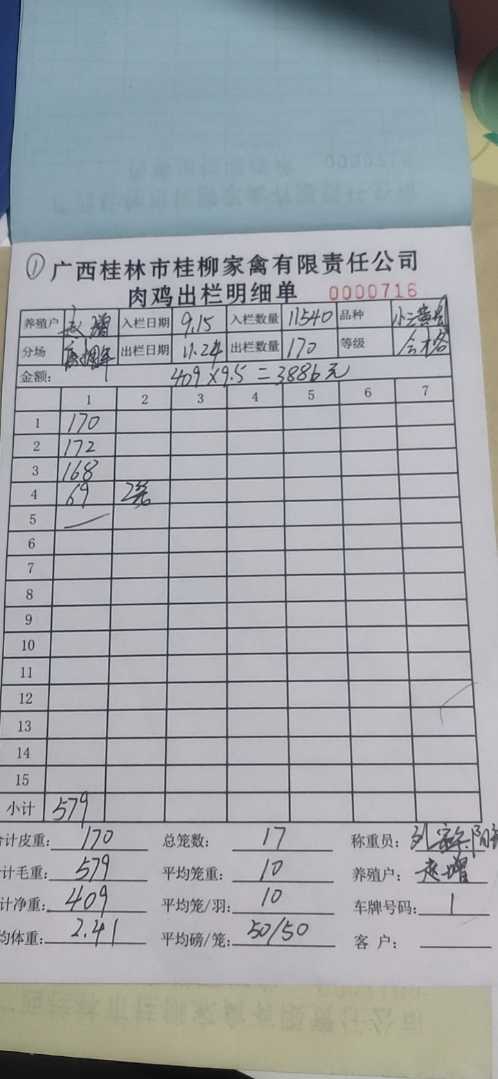 ① 广西桂林市桂柳家禽有限责任公司
肉鸡出栏明细单 0000716
养殖户 赵增 入栏日期 9.15 入栏数量 11540 品种
分场 出栏日期 11.24 出栏数量 170 等级 合格
金额: 409×9.5=3886元
1 2 3 4 5 6 7
1 170
2 172
3 168
4 69 2笼
5
6
7
8
9
10
11
12
13
14
15
小计 579
计皮重: 170 总笼数: 17 称重员:
计毛重: 579 平均笼重: 10 养殖户: 赵增
计净重: 409 平均笼/羽: 10 车牌号码: 1
均体重: 2.41 平均磅/笼: 50/50 客户: